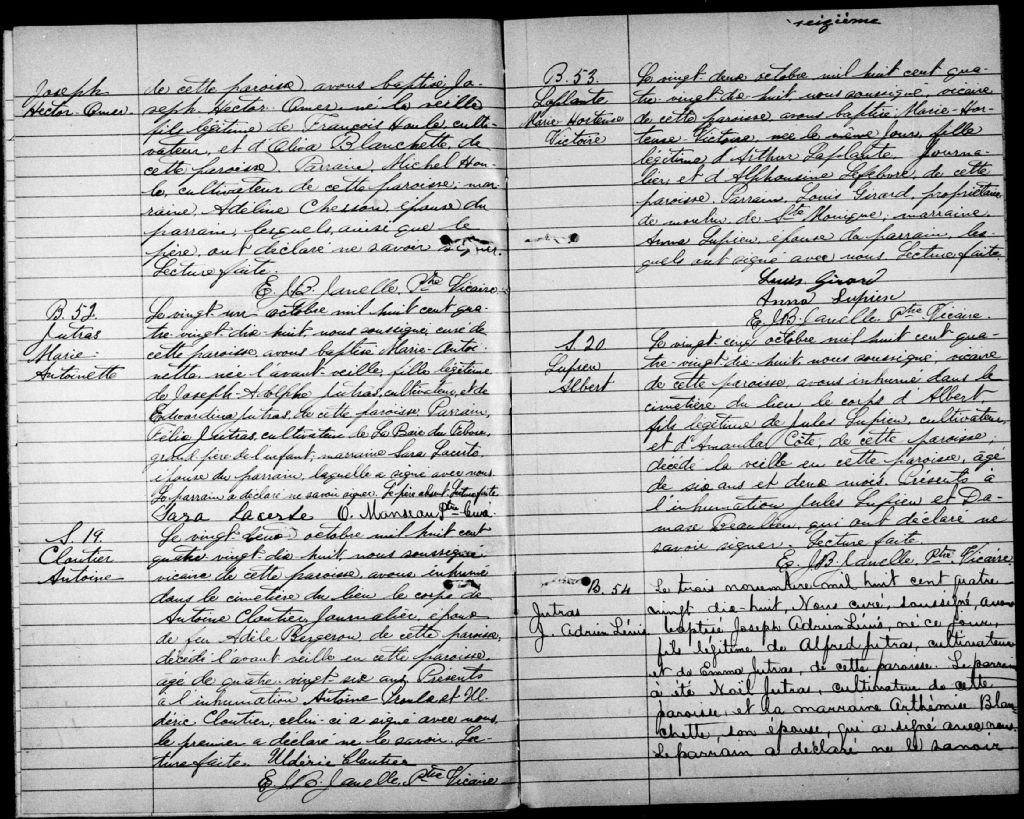 Joseph
Hector-Omer
de cette paroisse avons baptisé Jo-
seph Hector Omer né la veille
fils légitime de François Houle, culti-
vateur, et d'Oliva Blanchette, de
cette paroisse. Parrain Michel Hou-
le, cultivateur de cette paroisse; mar-
raine, Adeline Chesson, épouse du
parrain, lesquels, ainsi que le
père, ont déclaré ne savoir signer.
Lecture faite.
E. J.B. Janelle Ptre Vicaire
B. 52
Jutras
Marie-
Antoinette
Le vingt un octobre mil huit cent qua-
tre-vingt-dix-huit, nous soussigné, curé de
cette paroisse, avons baptisé Marie-Antoi-
nette, née l'avant-veille, fille légitime
de Joseph-Adolphe Jutras, cultivateur, et de
Edwardina Jutras, de cette paroisse. Parrain,
Félix Jutras, cultivateur de La Baie du Febvre,
grand-père de l'enfant; marraine Sara Lacerte,
épouse du parrain, laquelle a signé avec nous.
Le parrain a déclaré ne savoir signer. Le père absent. Lecture faite
Sara Lacerte O. Manseau Ptre Curé.
S. 19.
Cloutier
Antoine
Le vingt deux octobre mil huit cent
quatre vingt dix huit, nous soussigné
vicaire de cette paroisse, avons inhumé
dans le cimetière du lieu le corps de
Antoine Cloutier, Journalier, époux
de feu Adèle Bergeron de cette paroisse,
décédé l'avant veille en cette paroisse
agé de quatre-vingt six ans. Présents
à l'inhumation Antoine Proulx et Ul-
déric Cloutier, celui-ci a signé avec nous,
le premier a déclaré ne le savoir. Lec-
ture faite. Uldéric Cloutier
E. J.B. Janelle, Ptre Vicaire
seizième
B. 53.
Laplante
Marie Hortense
Victoire
Le vingt-deux octobre, mil huit cent qua-
tre-vingt-dix-huit, nous soussigné, vicaire
de cette paroisse avons baptisé Marie-Hor-
tense Victoire, née le même jour, fille
légitime d'Arthur Laplante, journa-
lier, et d'Alphonsine Lefebvre, de cette
paroisse. Parrain, Louis Girard, propriétaire
de moulin de Ste Monique; marraine,
Anna Lupien, épouse du parrain, les-
quels ont signé avec nous. Lecture faite.
Louis Girard
Anna Lupien
E. J.B. Janelle Ptre Vicaire.
S. 20
Lupien
Albert
Le vingt cinq octobre mil huit cent qua-
tre-vingt-dix-huit nous soussigné, vicaire
de cette paroisse, avons inhumé dans le
cimetière du lieu le corps d'Albert
fils légitime de Jules Lupien, cultivateur,
et d'Amanda Côté, de cette paroisse,
décédé la veille en cette paroisse, âgé
de six ans et deux mois. Présents à
l'inhumation Jules Lupien et Da-
mase Beaulieu, qui ont déclaré ne
savoir signer. Lecture faite
E. J.B. Janelle, Ptre Vicaire.
B. 54
Jutras
J. Adrien Lénis
Le trois novembre mil huit cent quatre
vingt dix-huit, Nous curé, soussigné, avons
baptisé Joseph Adrien Lénis, né ce jour,
fils légitime de Alfred Jutras, cultivateur
et de Emma Jutras, de cette paroisse. Le parrain
a été Noël Jutras, cultivateur de cette
paroisse, et la marraine Arthémise Blan-
chette, son épouse, qui a signé avec nous.
Le parrain a déclaré ne le savoir